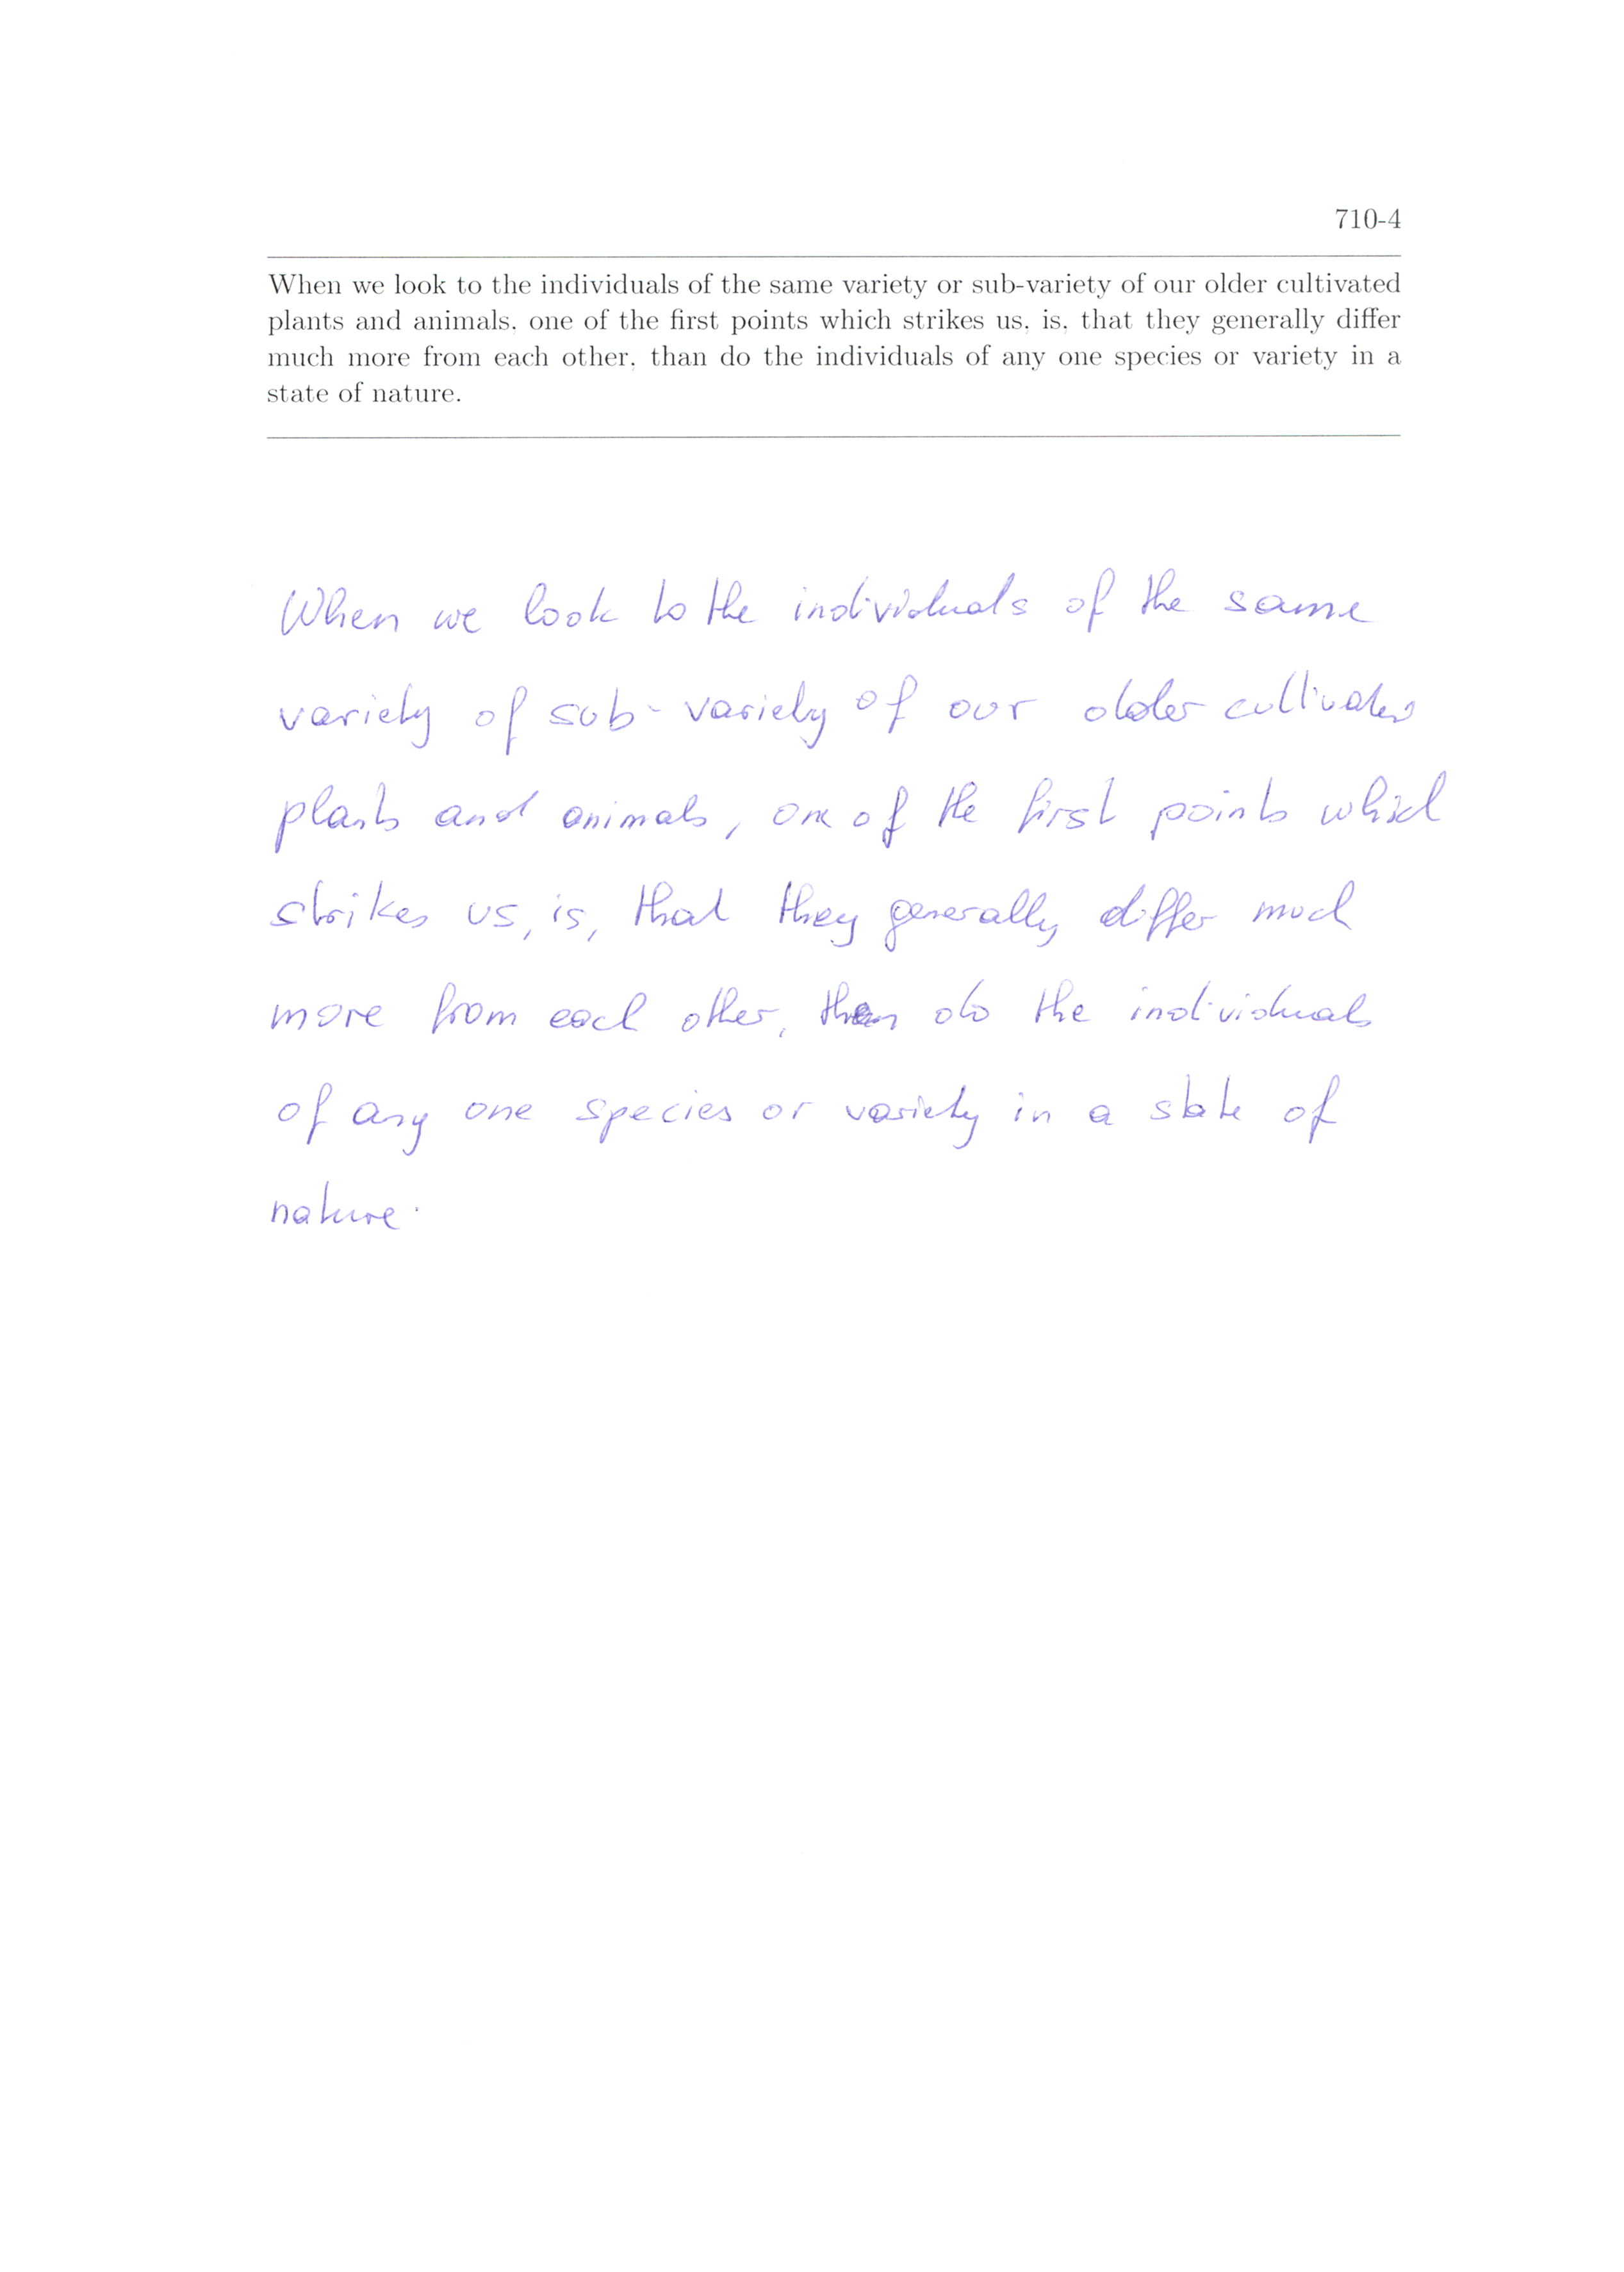 710-4
When we look to the individuals of the same variety or sub-variety of our older cultivated
plants and animals, one of the first points which strikes us, is, that they generally differ
much more from each other, than do the individuals of any one species or variety in a
state of nature.
When we look to the individuals of the same
variety of sub-variety of our older cultivated
plants and animals, one of the first points which
strikes us, is, that they generally differ much
more from each other, than do the individuals
of any one species or variety in a state of
nature.